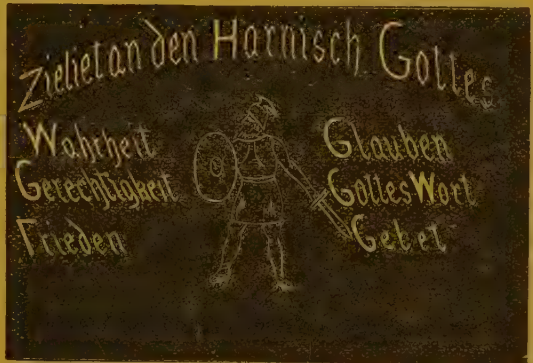 Ziehet an den Harnisch Gottes
Wahrheit
Gerechtigkeit
Frieden
Glauben
Gottes Wort
Gebet